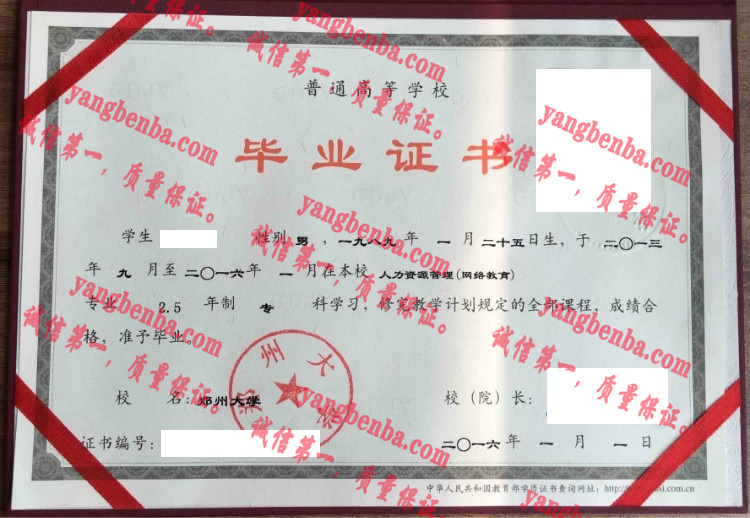 普通高等学校
毕业证书
学生 性别 男 ，一九八九年 一 月二十五日生，于 二〇一三
年 九 月至二〇一六年 一 月在本校 人力资源管理(网络教育)
专业 2.5 年制 专 科学习，修完教学计划规定的全部课程，成绩合
格，准予毕业。
郑州大学
校 名：郑州大学 校（院）长：
证书编号： 二〇一六年 一 月 一 日
中华人民共和国教育部学历证书查询网址：http://
si.com.cn
yangbenba.com
诚信第一，质量保证。
yangbenba.com
诚信第一，质量保证。
yangbenba.com
诚信第一，质量保证。
yangbenba.com
诚信第一，质量保证。
yangbenba.com
诚信第一，质量保证。
yangbenba.com
诚信第一，质量保证。
yangbenba.com
诚信第一，质量保证。
yangbenba.com
诚信第一，质量保证。
yangbenba.com
yangbenba.com